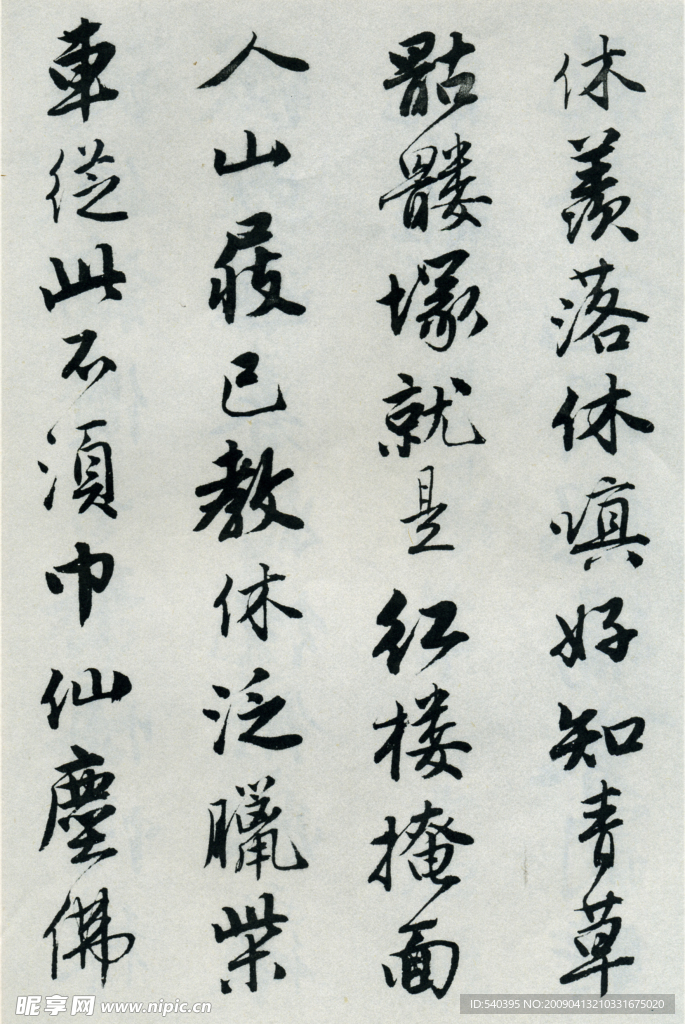 休羡落休嗔好知青草
骷髅塚就是红楼掩面
人山屐已教休泛臘柴
車從此不須巾仙塵佛
昵享网 www.nipic.cn
ID:540395 NO:20090413210331675020